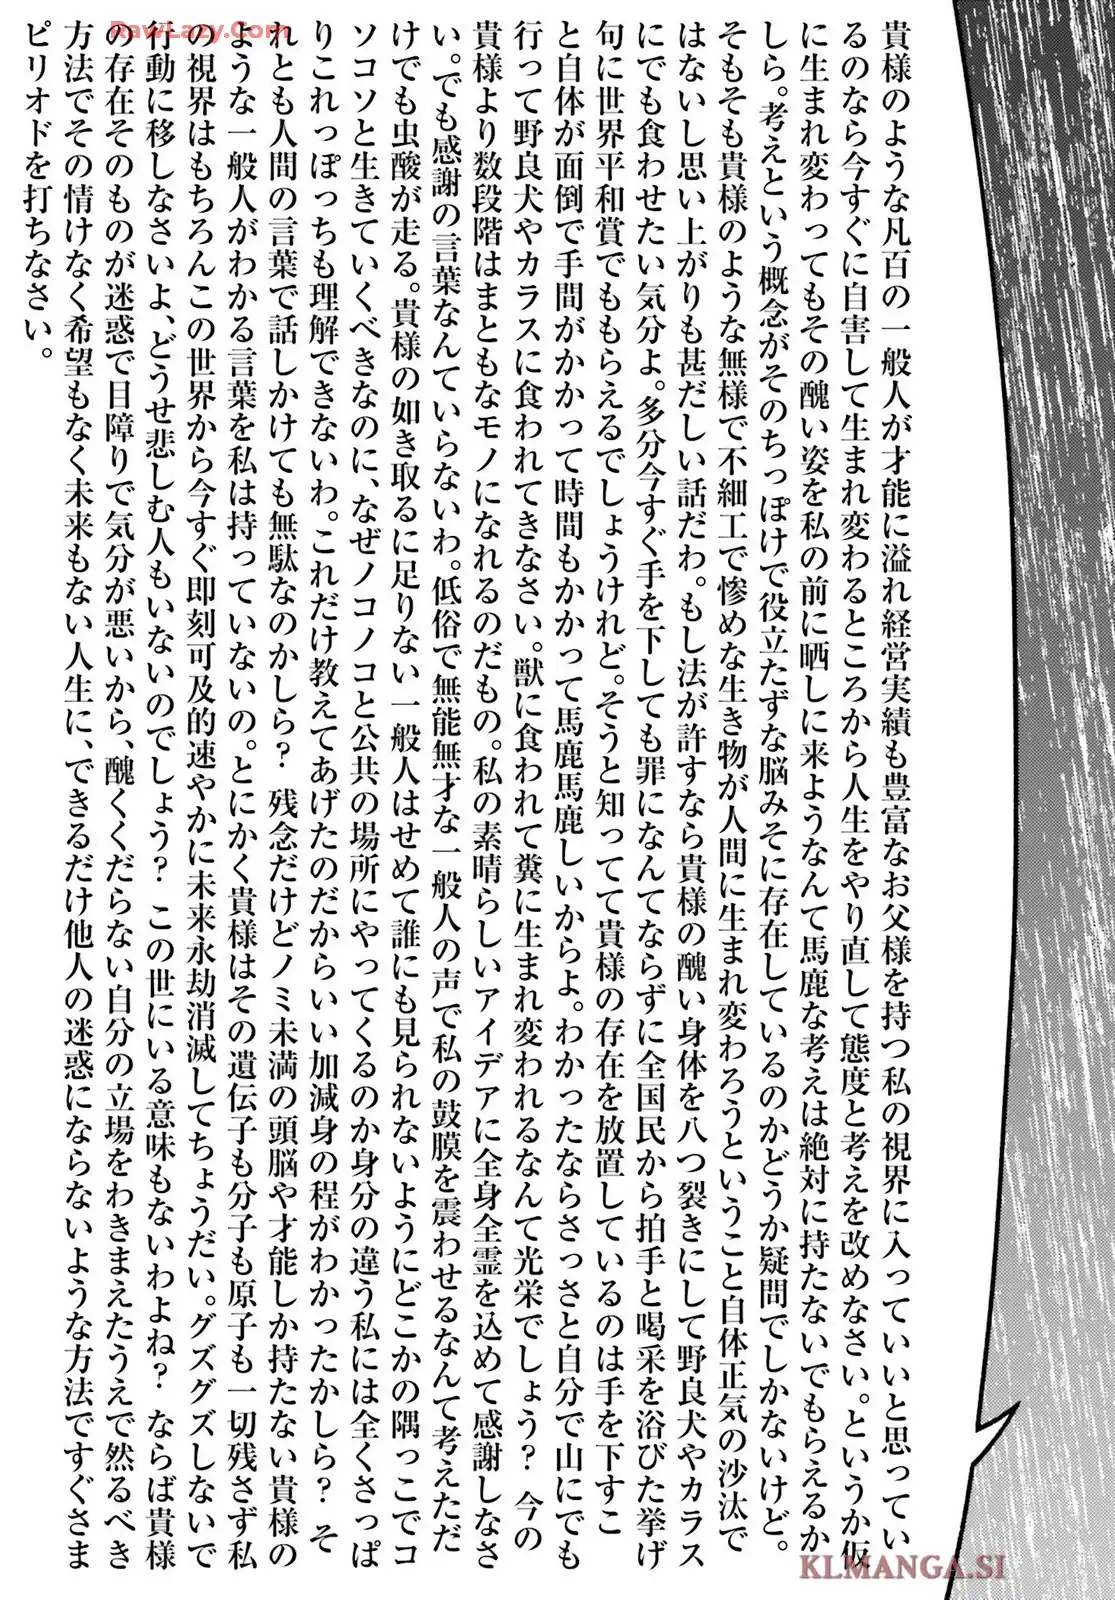 貴様のような凡百の一般人が才能に溢れ経営実績も豊富なお父様を持つ私の視界に入っていいと思ってい
るのなら今すぐに自害して生まれ変わるところから人生をやり直して態度と考えを改めなさい。というか仮
に生まれ変わってもその醜い姿を私の前に晒しに来ようなんて馬鹿な考えは絶対に持たないでもらえるか
しら。考えという概念がそのちっぽけで役立たずな脳みそに存在しているのかどうか疑問でしかないけど。
そもそも貴様のような無様で不細工で惨めな生き物が人間に生まれ変わろうということ自体正気の沙汰で
はないし思い上がりも甚だしい話だわ。もし法が許すなら貴様の醜い身体を八つ裂きにして野良犬やカラス
にでも食わせたい気分よ。多分今すぐ手を下しても罪になんてならずに全国民から拍手と喝采を浴びた挙げ
句に世界平和賞でももらえるでしょうけれど。そうと知ってて貴様の存在を放置しているのは手を下すこ
と自体が面倒で手間がかかって時間もかかって馬鹿馬鹿しいからよ。わかったならさっさと自分で山にでも
行って野良犬やカラスに食われてきなさい。獣に食われて糞に生まれ変われるなんて光栄でしょう？ 今の
貴様より数段階はまともなモノになれるのだもの。私の素晴らしいアイデアに全身全霊を込めて感謝しなさ
い。でも感謝の言葉なんていらないわ。低俗で無能無才な一般人の声で私の鼓膜を震わせるなんて考えただ
けでも虫酸が走る。貴様の如き取るに足りない一般人はせめて誰にも見られないようにどこかの隅っこでコ
ソコソと生きていくべきなのに、なぜノコノコと公共の場所にやってくるのか身分の違う私には全くさっぱ
りこれっぽっちも理解できないわ。これだけ教えてあげたのだからいい加減身の程がわかったかしら？ そ
れとも人間の言葉で話しかけても無駄なのかしら？ 残念だけどノミ未満の頭脳や才能しか持たない貴様の
ような一般人がわかる言葉を私は持っていないの。とにかく貴様はその遺伝子も分子も原子も一切残さず私
の視界はもちろんこの世界から今すぐ即刻可及的速やかに未来永劫消滅してちょうだい。グズグズしないで
行動に移しなさいよ、どうせ悲しむ人もいないのでしょう？ この世にいる意味もないわよね？ ならば貴様
の存在そのものが迷惑で目障りで気分が悪いから、醜くくだらない自分の立場をわきまえたうえで然るべき
方法でその情けなく希望もなく未来もない人生に、できるだけ他人の迷惑にならないような方法ですぐさま
ピリオドを打ちなさい。
RawLazy.Com
KLMANGA.SI